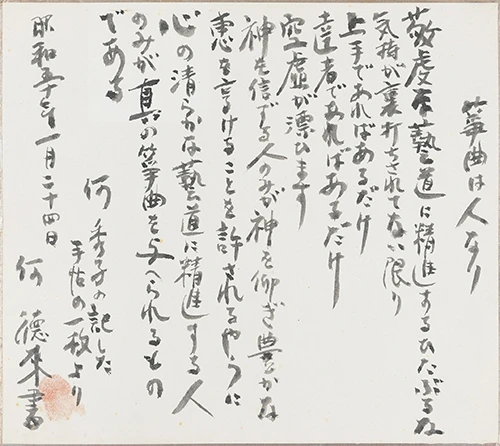 箏曲は人なり
敬虔な藝道に精進するひたぶるな
気持が裏打ちされてない限り
上手であればあるだけ
達者であればあるだけ
空虚が漂ひます
神を信ずる人のみが神を仰ぎ豊かな
恵を享けることを許されるやうに
心の清らかな藝道に精進する人
のみが真の箏曲を与へられるもの
である
何秀子の記した
手帖の一枚より
昭和五十年一月二十四日
何德來書